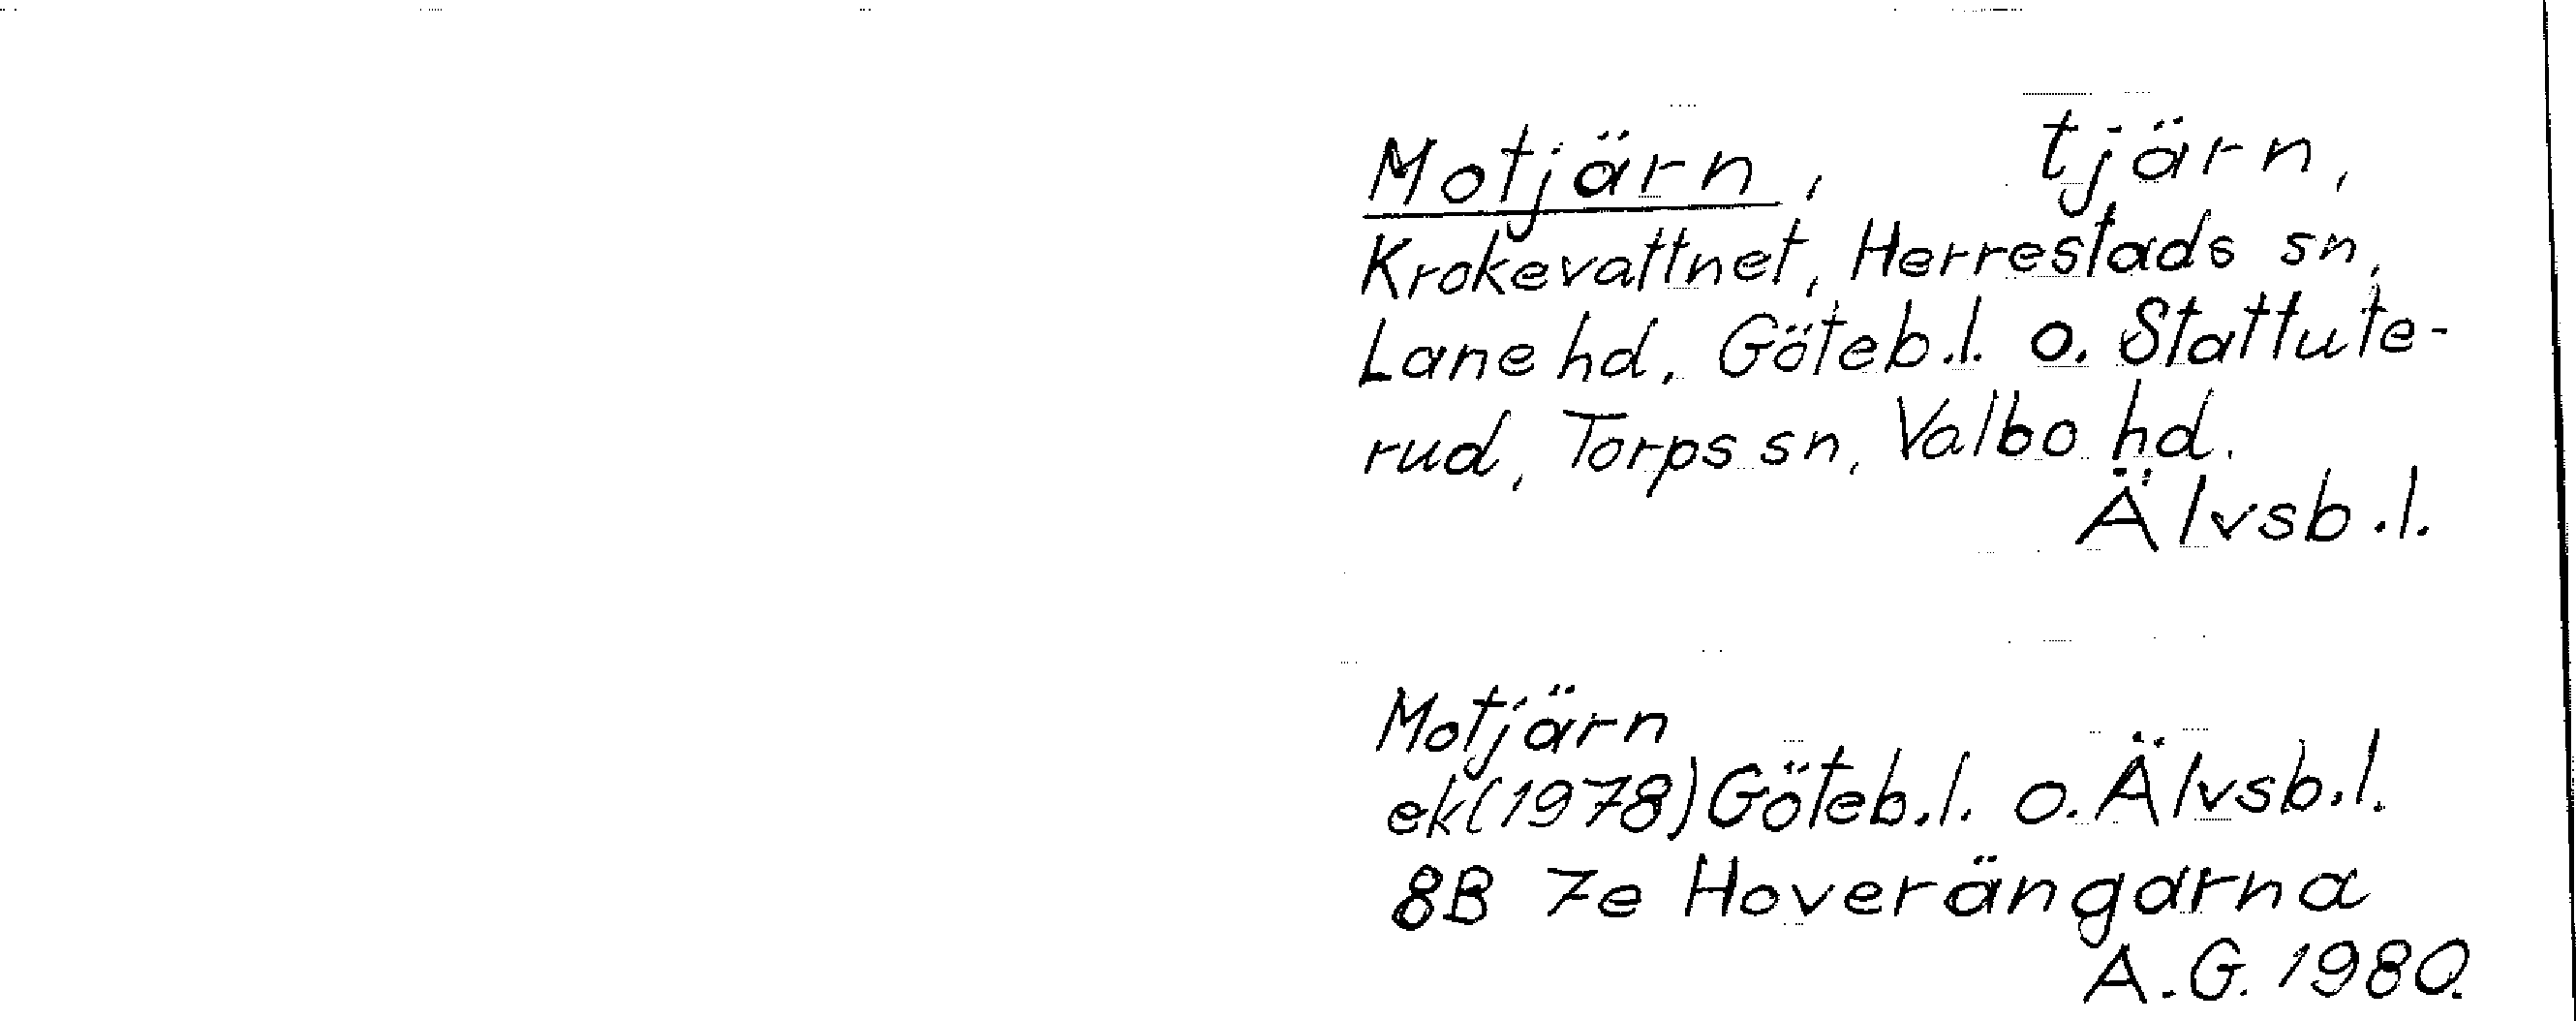 Motjärn, tjärn,
Krokevattnet, Herrestads sn,
Lane hd, Göteb.l. o. Stattute-
rud, Torps sn, Valbo hd.
Älvsb.l.
Motjärn
ek(1978) Göteb.l. o. Älvsb.l.
8B 7e Hoverängarna
A.G. 1980.